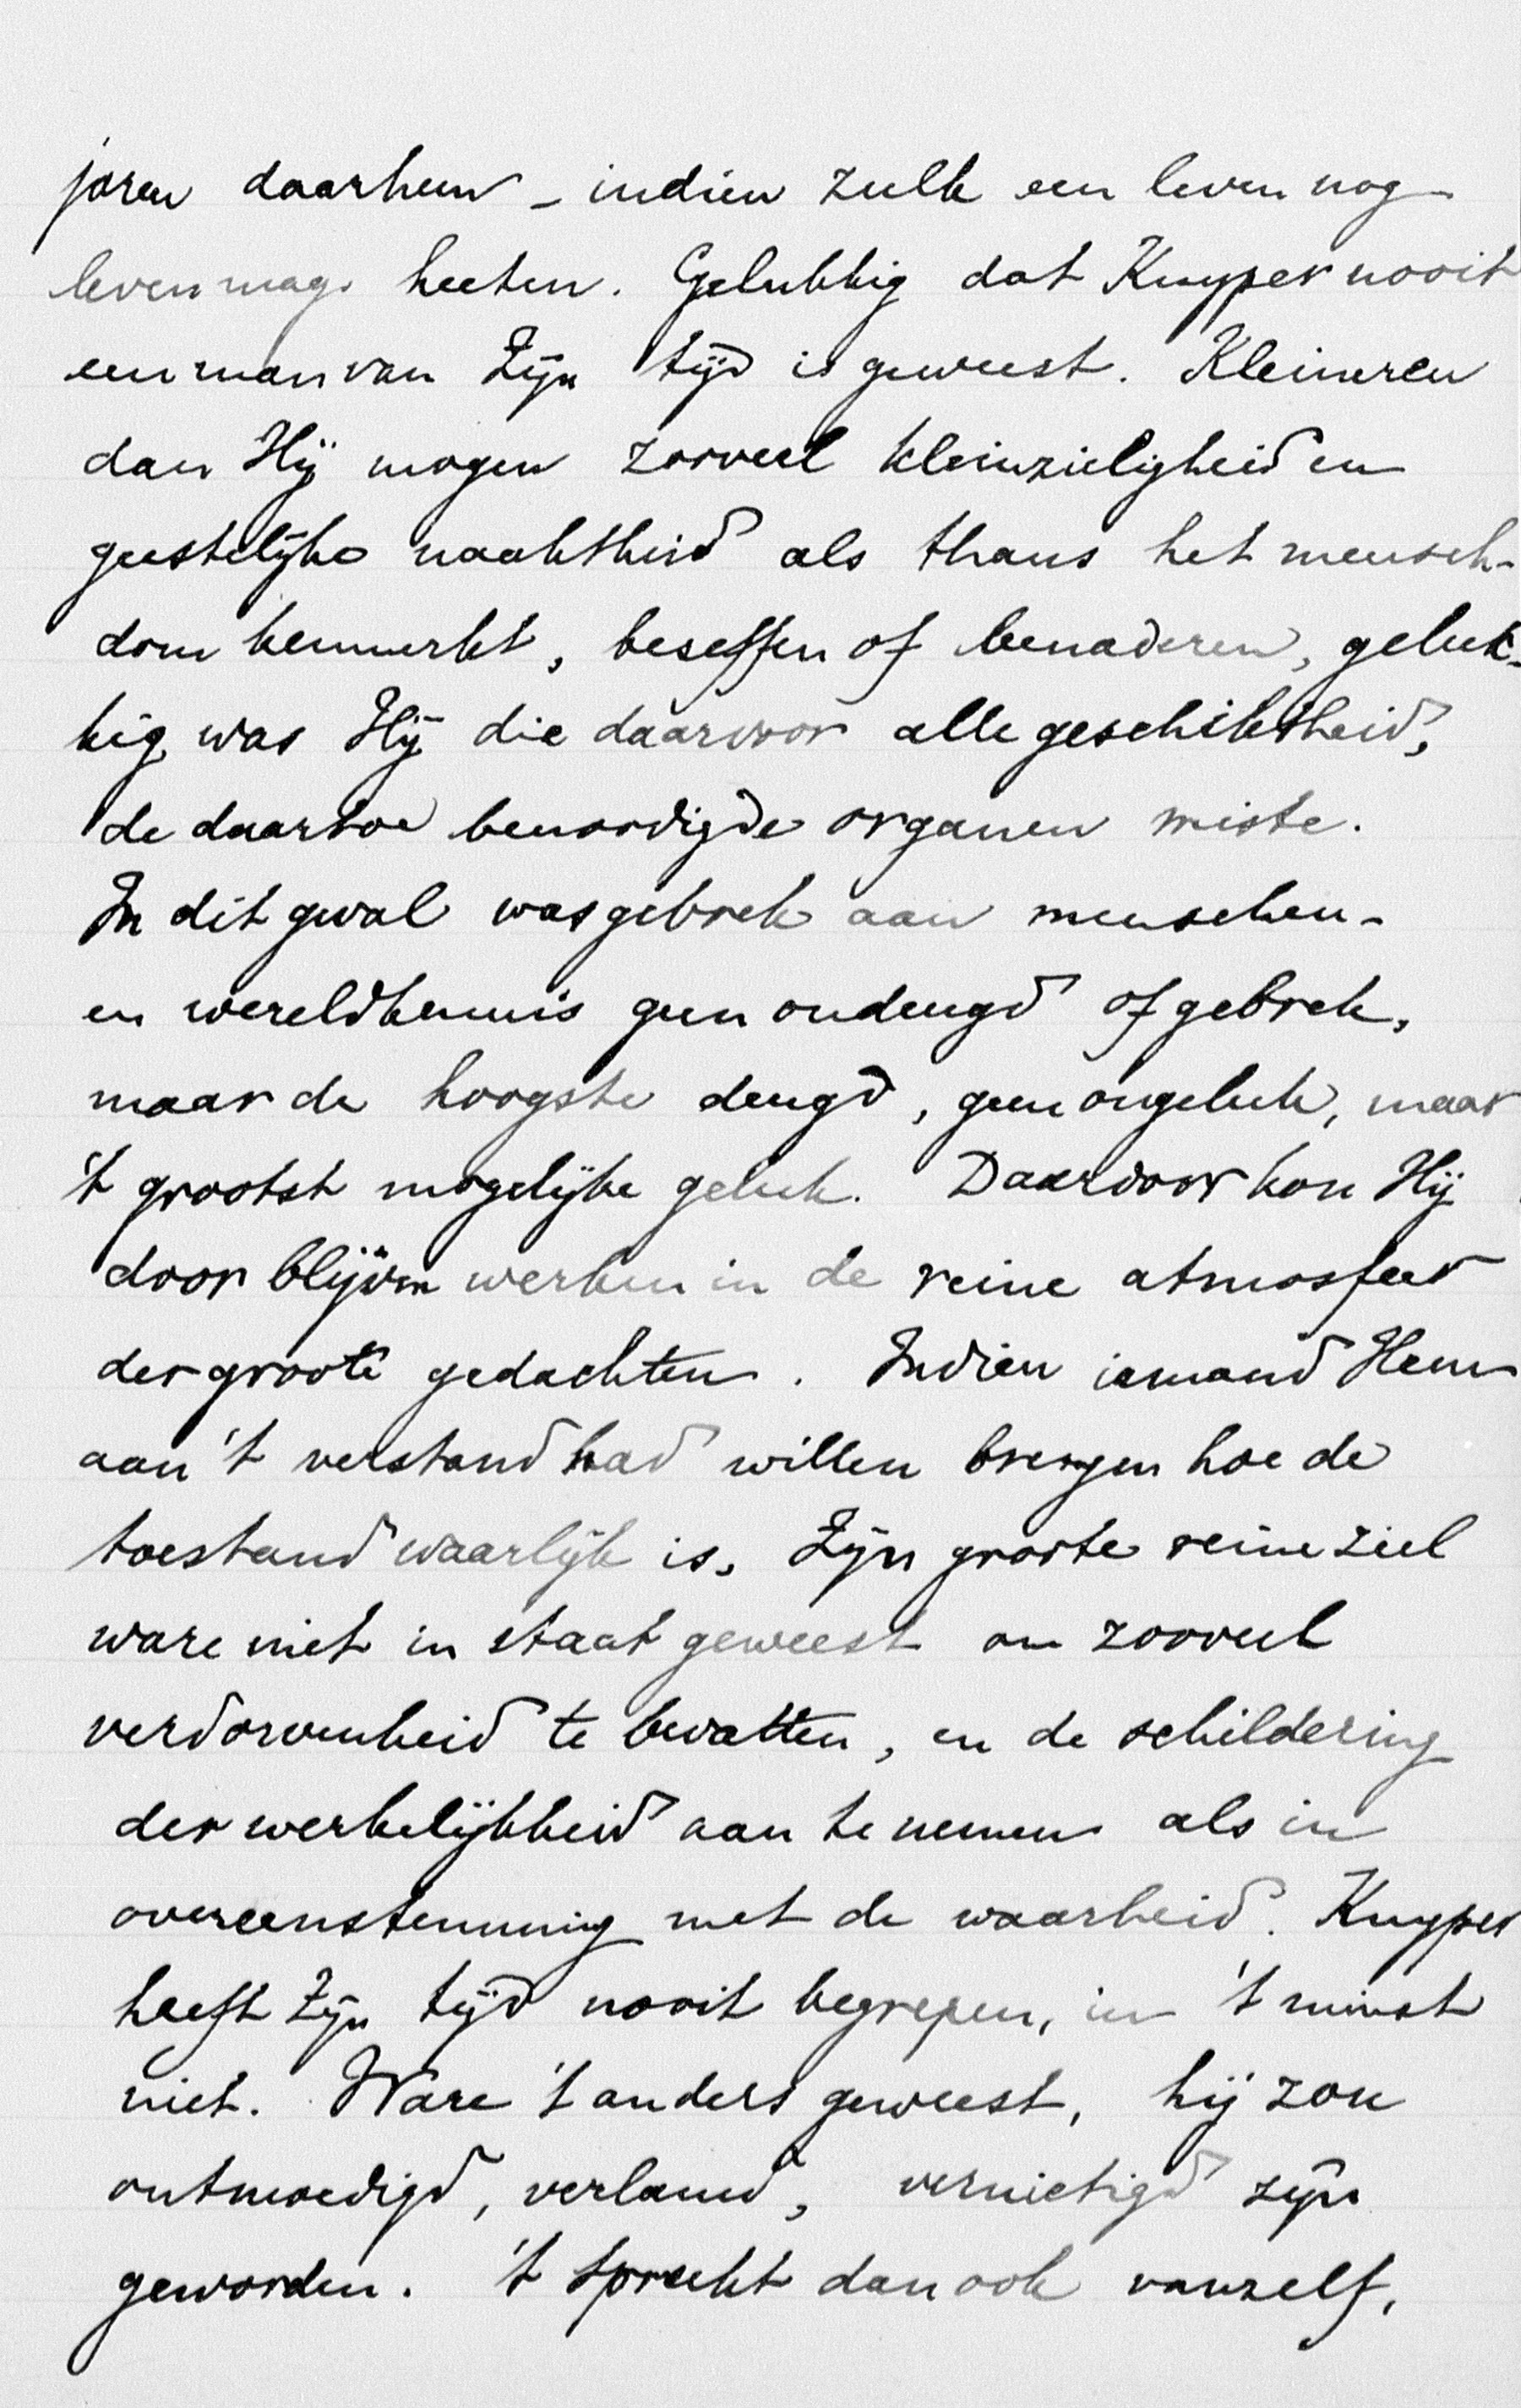 jaren daarheen - indien zulk een leven nog
leven mag heeten. Gelukkig dat Kuyper nooit
een man van Zijn tijd is geweest. Kleineren
dan Hij mogen zooveel kleinzieligheid en
geestelijke naaktheid als thans het mensch-
dom kenmerkt, beseffen of benaderen, geluk-
kig was Hij die daarvoor alle geschiktheid,
de daartoe benoodigde organen miste.
In dit geval was gebrek aan menschen-
en wereldkennis geen ondeugd of gebrek,
maar de hoogste deugd, geen ongeluk, maar
't grootst mogelijke geluk. Daardoor kon Hij
door blijven werken in de reine atmosfeer
der groote gedachten. Indien iemand Hem
aan 't verstand had willen brengen hoe de
toestand waarlijk is, Zijn groote reine ziel
ware niet in staat geweest om zooveel
verdorvenheid te bevatten, en de schildering
der werkelijkheid aan te nemen als in
overeenstemming met de waarheid. Kuyper
heeft Zijn tijd nooit begrepen, in 't minst
niet. Ware 't anders geweest, hij zou
ontmoedigd, verlamd, vernietigd zijn
geworden. 't Spreekt dan ook vanzelf,